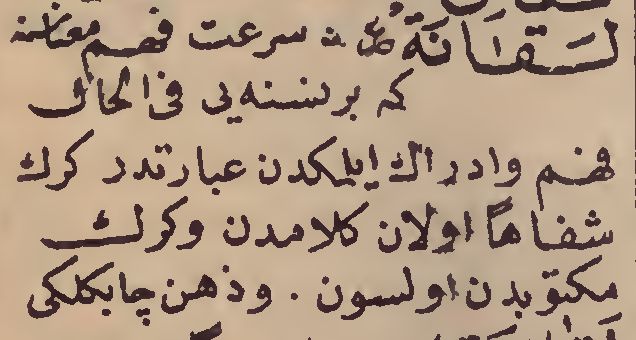 لَسَقَانَة سرعت فهم معناسنه
كه برنسنه‌يى فى الحال
فهم وادراك ايلمكدن عبارتدر كرك
شفاهاً اولان كلامدن وكرك
مكتوبدن اولسون . وذهن چابكلكى